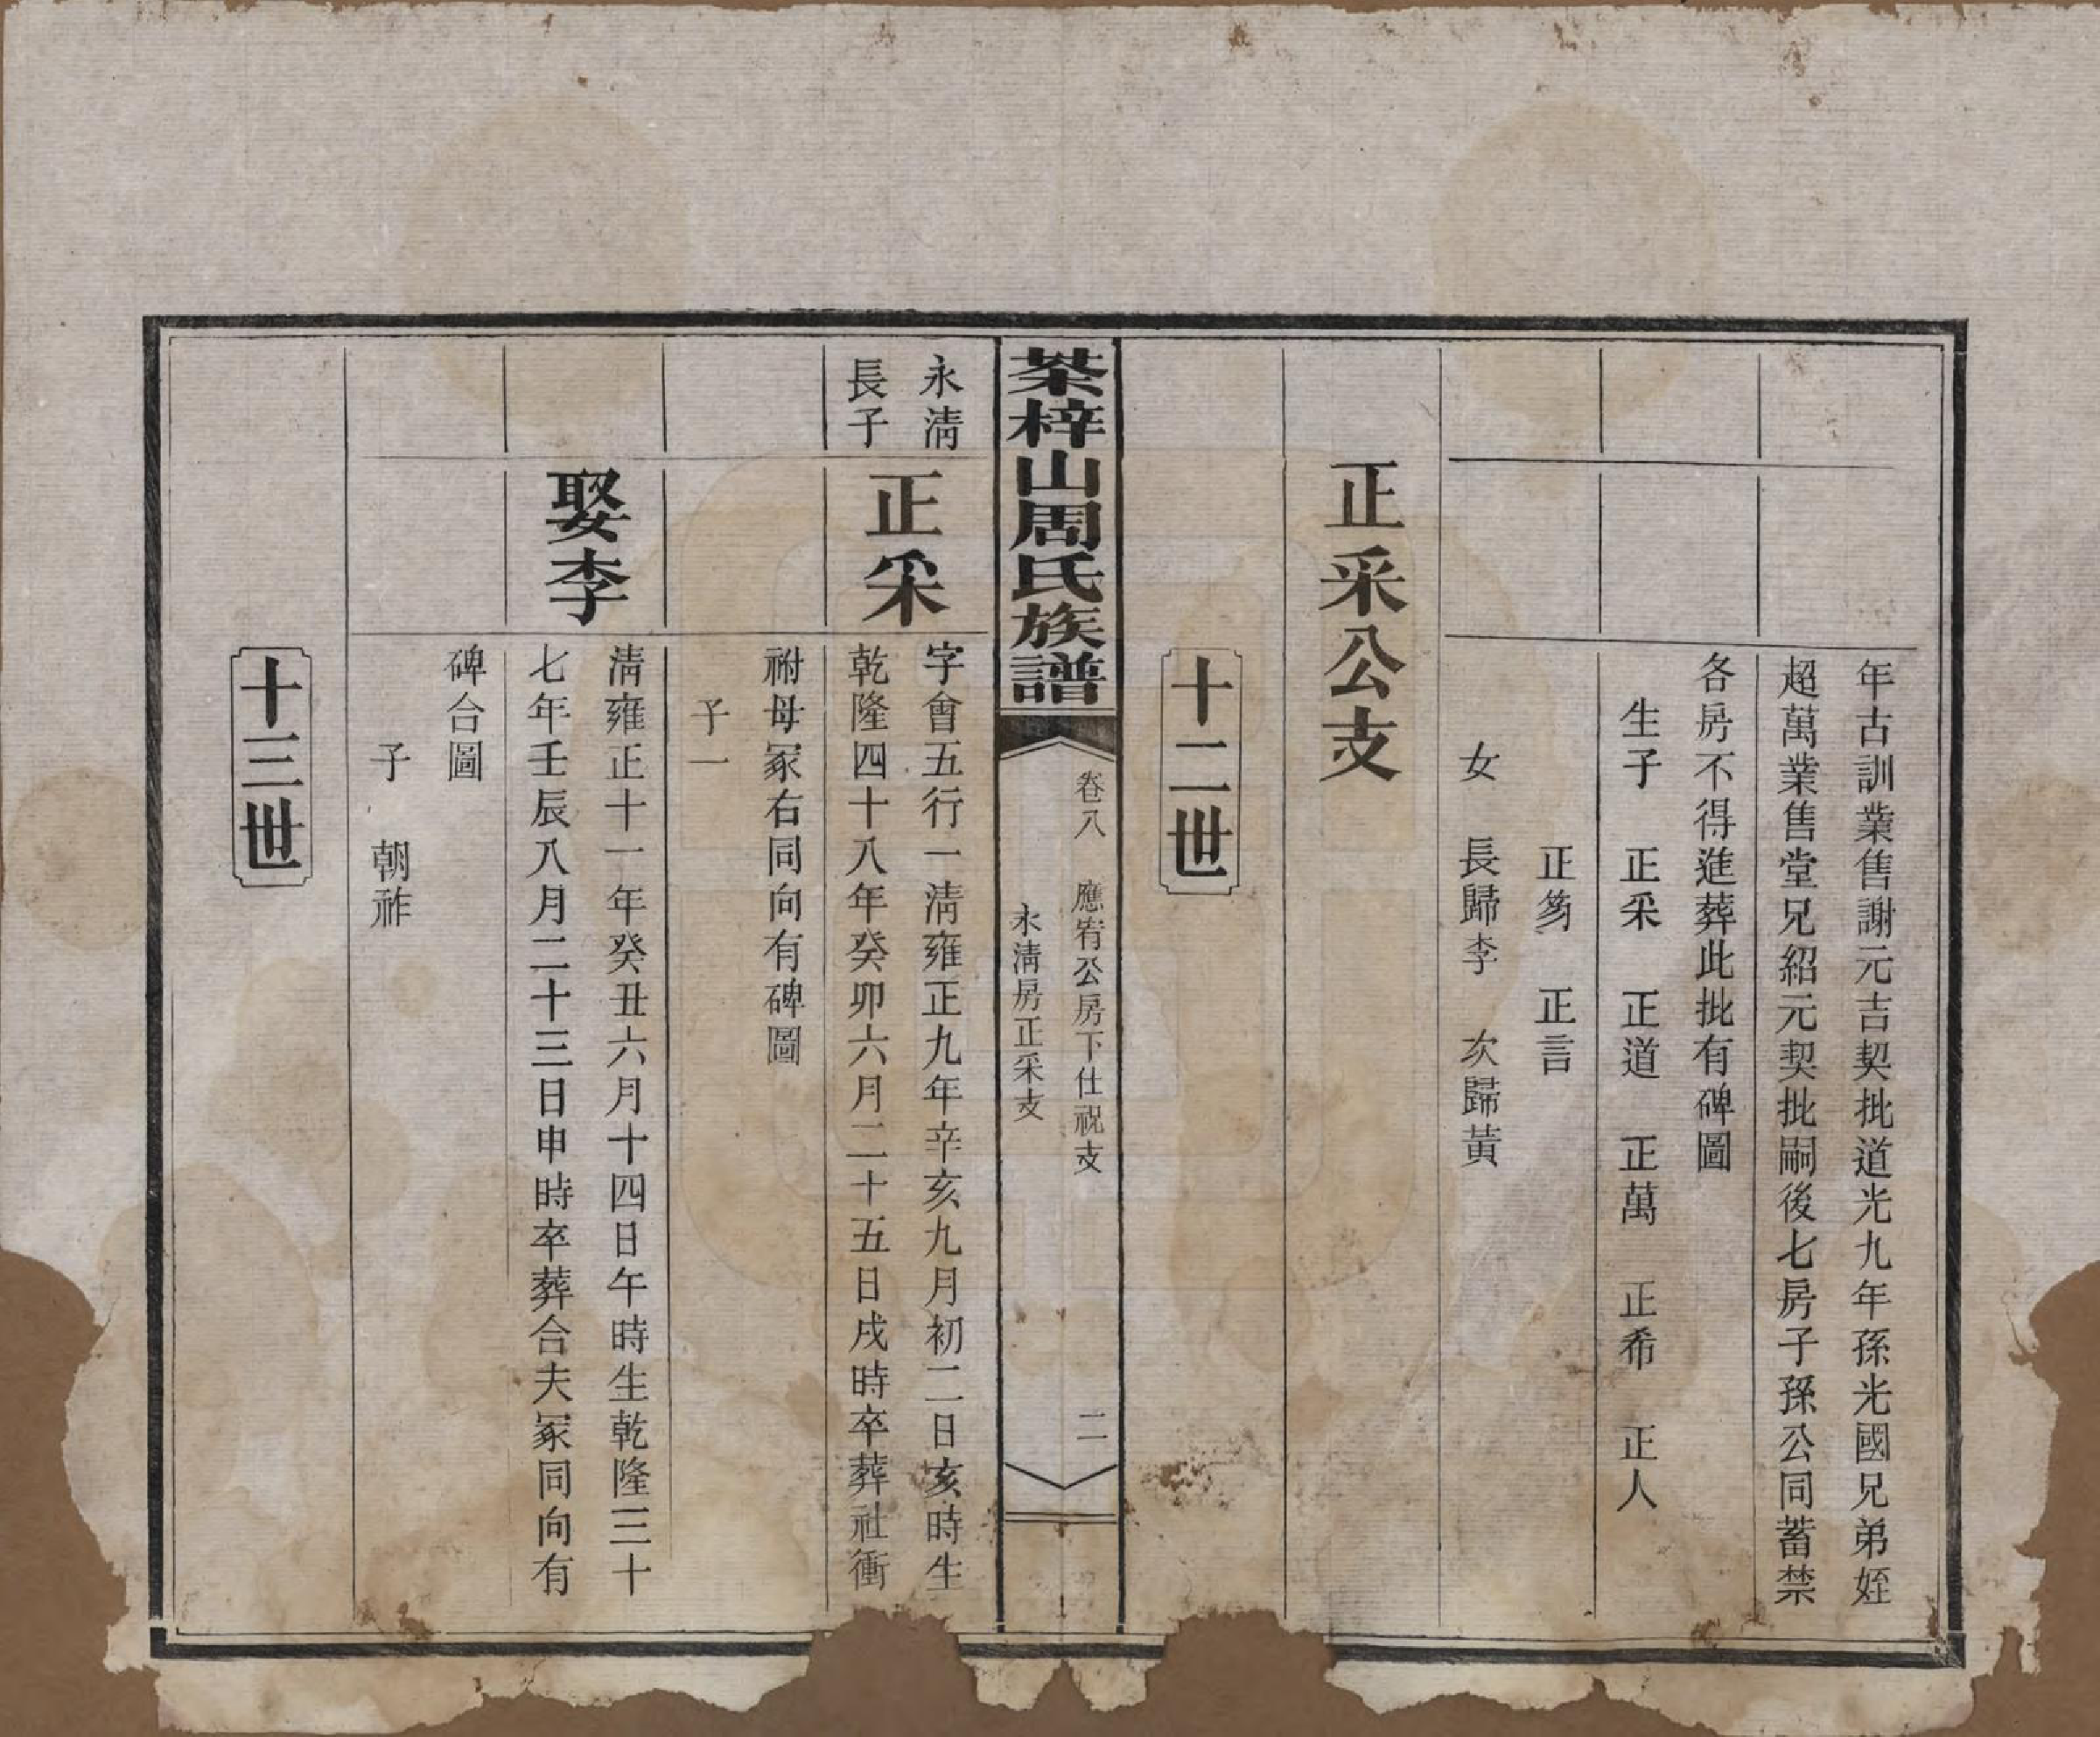 年古訓業售謝元吉契批道光九年孫光國兄弟姪
超萬業售堂兄紹元契批嗣後七房子孫公同蓄禁
各房不得進葬此批有碑圖
生子 正采 正道 正萬 正希 正人
正芴 正言
女 長歸李 次歸黃
正采公支
十二世
棻梓山周氏族譜
卷八 應宥公房下仕祝支
永淸房正采支
二
永淸
長子
正采
字會五行一淸雍正九年辛亥九月初二日亥時生
乾隆四十八年癸卯六月二十五日戌時卒葬社衝
祔母冢右同向有碑圖
子一
娶李
淸雍正十一年癸丑六月十四日午時生乾隆三十
七年壬辰八月二十三日申時卒葬合夫冢同向有
碑合圖
子 朝祚
十三世